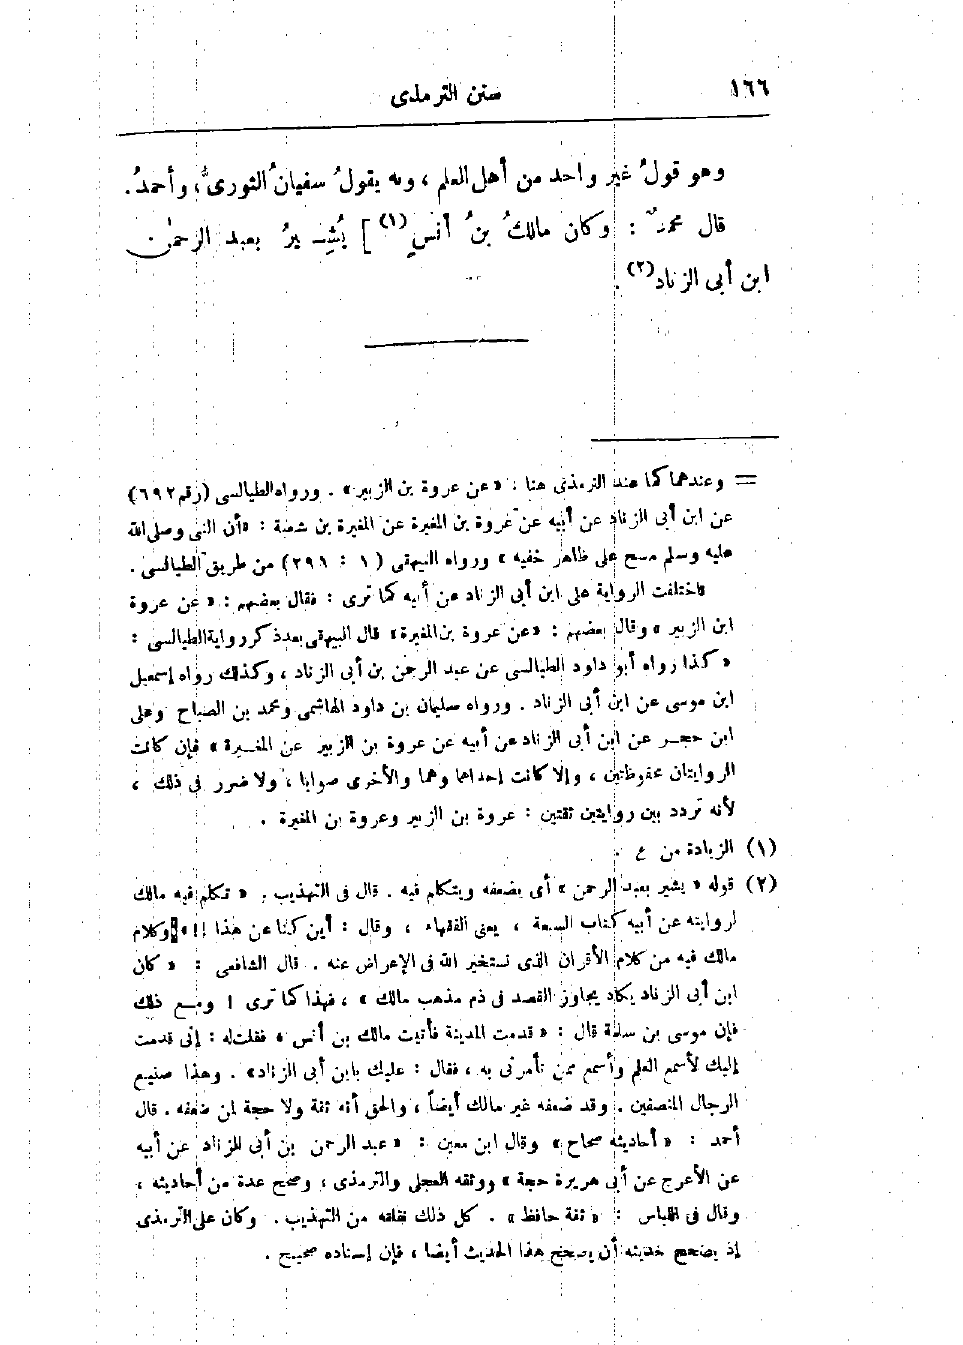 ١٦٦
سنن الترمذى
وهو قولُ غير واحد من أهل العلم ، وبه يقولُ سفيانُ الثورىُّ ، وأحمدُ .
قال محمدٌ : وكان مالكُ بنُ أنسٍ (١) ] يُشِـيرُ بعبد الرحمٰن
ابن أبى الزناد (٢) .
= وعندهما كما عند الترمذى هنا : «عن عروة بن الزبير» . ورواه الطيالسى (رقم ٦٩٢)
عن ابن أبى الزناد عن أبيه عن عروة بن المغيرة عن المغيرة بن شعبة : «أن النبى صلى الله
عليه وسلم مسح على ظاهر خفيه» ورواه البيهقى (١ : ٢٩١) من طريق الطيالسى .
فاختلفت الرواية على ابن أبى الزناد عن أبيه كما ترى : فقال بعضهم : «عن عروة
ابن الزبير» وقال بعضهم : «عن عروة بن المغيرة» قال البيهقى بعد ذكر رواية الطيالسى :
«كذا رواه أبو داود الطيالسى عن عبد الرحمن بن أبى الزناد ، وكذلك رواه إسمعيل
ابن موسى عن ابن أبى الزناد . ورواه سليمان بن داود الهاشمى ومحمد بن الصباح وعلى
ابن حجـر عن ابن أبى الزناد عن أبيه عن عروة بن الزبير عن المغـيرة» فإن كانت
الروايتان محفوظتين ، وإلا كانت إحداهما وهما والأخرى صوابا ، ولا ضرر فى ذلك ،
لأنه تردد بين روايتين ثقتين : عروة بن الزبير وعروة بن المغيرة .
(١) الزيادة من ع .
(٢) قوله «يشير بعبد الرحمن» أى يضعفه ويتكلم فيه . قال فى التهذيب . «تكلم فيه مالك
لروايته عن أبيه كتاب السبعة ، يعنى الفقهاء ، وقال : أين كنا عن هذا !!» وكلام
مالك فيه من كلام الأقران الذى نستخير الله فى الإعراض عنه . قال الشافعى : «كان
ابن أبى الزناد يكاد يجاوز القصد فى ذم مذهب مالك» ، فهذا كما ترى ! ومـع ذلك
فإن موسى بن سلمة قال : «قدمت المدينة فأتيت مالك بن أنس ، فقلت له : إنى قدمت
إليك لأسمع العلم وأسمع ممن تأمرنى به ، فقال : عليك بابن أبى الزناد» . وهذا صنيـع
الرجال المنصفين . وقد ضعفه غير مالك أيضاً ، والحق أنه ثقة ولا حجة لمن ضعفه . قال
أحمد : «أحاديثه صحاح» وقال ابن معين : «عبد الرحمن بن أبى الزناد عن أبيه
عن الأعرج عن أبى هريرة حجة» ووثقه العجلى والترمذى ، وصحح عدة من أحاديثه ،
وقال فى اللباس : «ثقة حافظ» . كل ذلك نقلته من التهذيب . وكان على الترمذى
إذ يصحح حديثه أن يصحح هذا الحديث أيضا ، فإن إسناده صحيح .